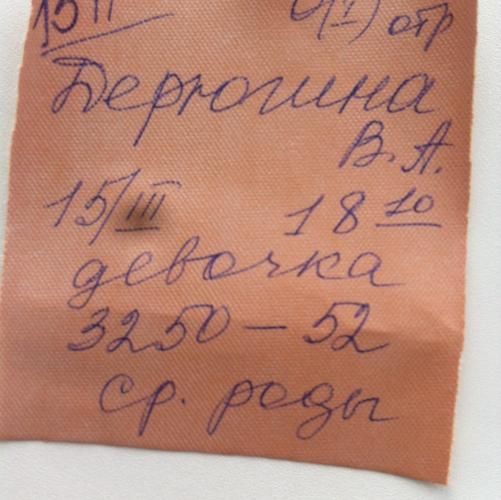 15 II
(I) отр
Дерюгина
В. А.
15/III 18 10
девочка
3250 – 52
ср. роды